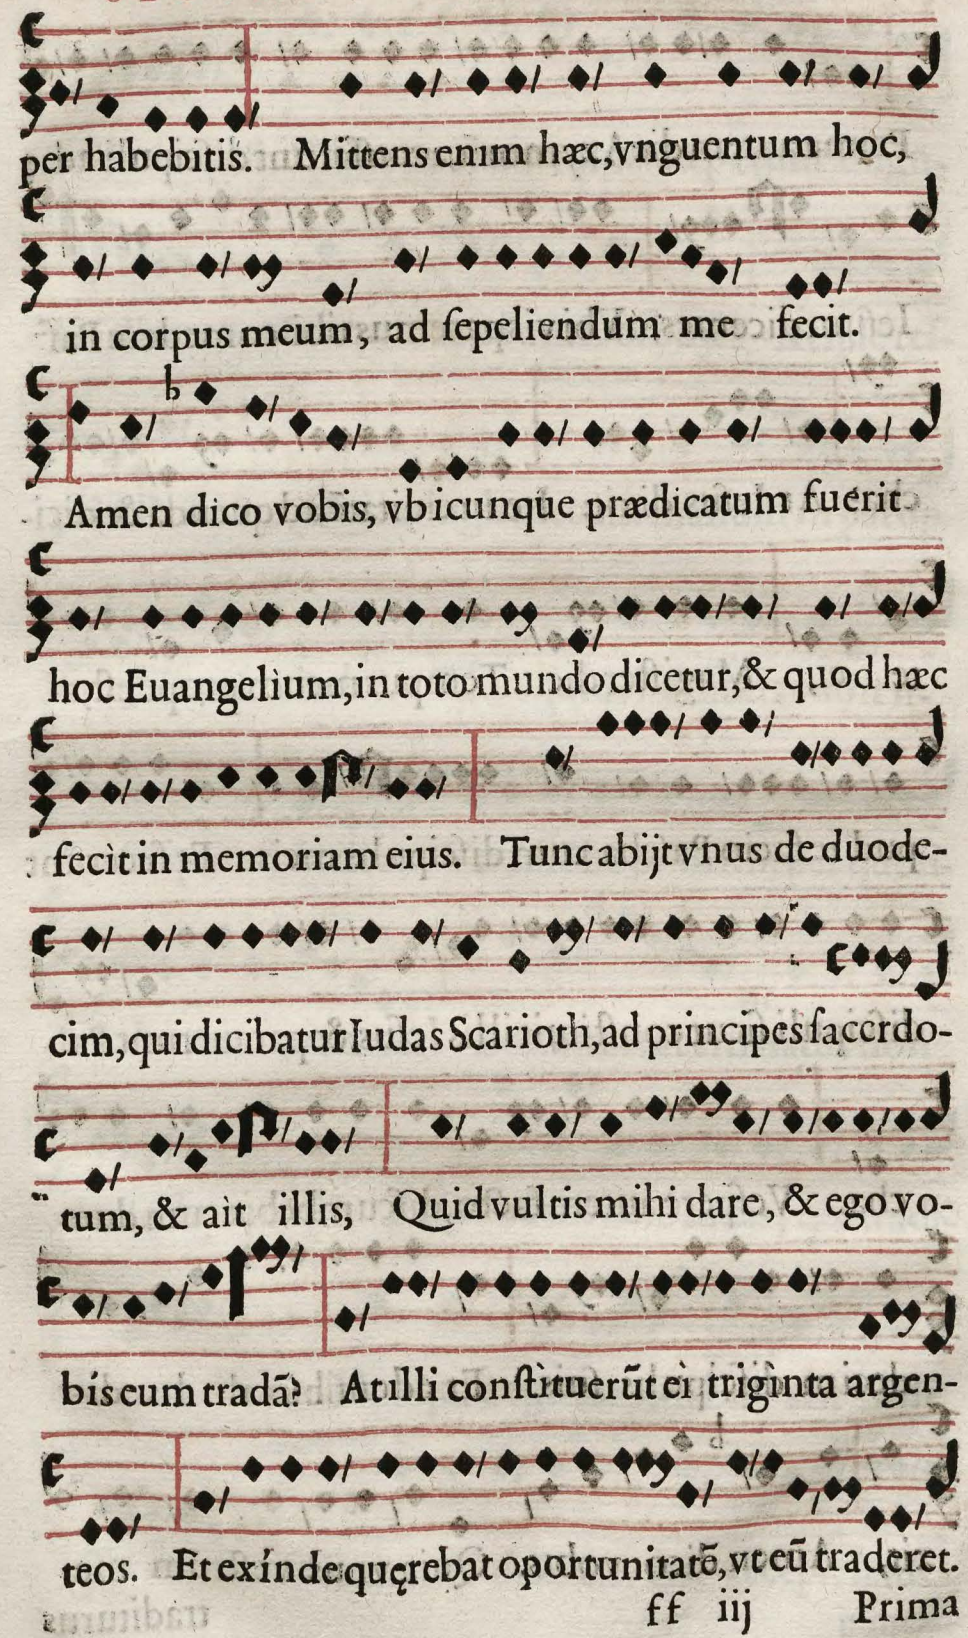 per habebitis. Mittens enim hæc, vnguentum hoc,
in corpus meum, ad ſepeliendum me fecit.
Amen dico vobis, vbicunque prædicatum fuerit
hoc Euangelìum, in toto mundo dicetur, & quod hæc
fecìt in memoriam eius. Tunc abijt vnus de duode-
cim, qui dicibatur Iudas Scarioth, ad principes ſacerdo-
tum, & aìt illis, Quid vultis mihi dare, & ego vo-
bis eum tradã? At illi conſtìtuerũt eì trigìnta argen-
teos. Et exínde quęrebat oportunitatẽ, vt eũ traderet.
ff iij Prima